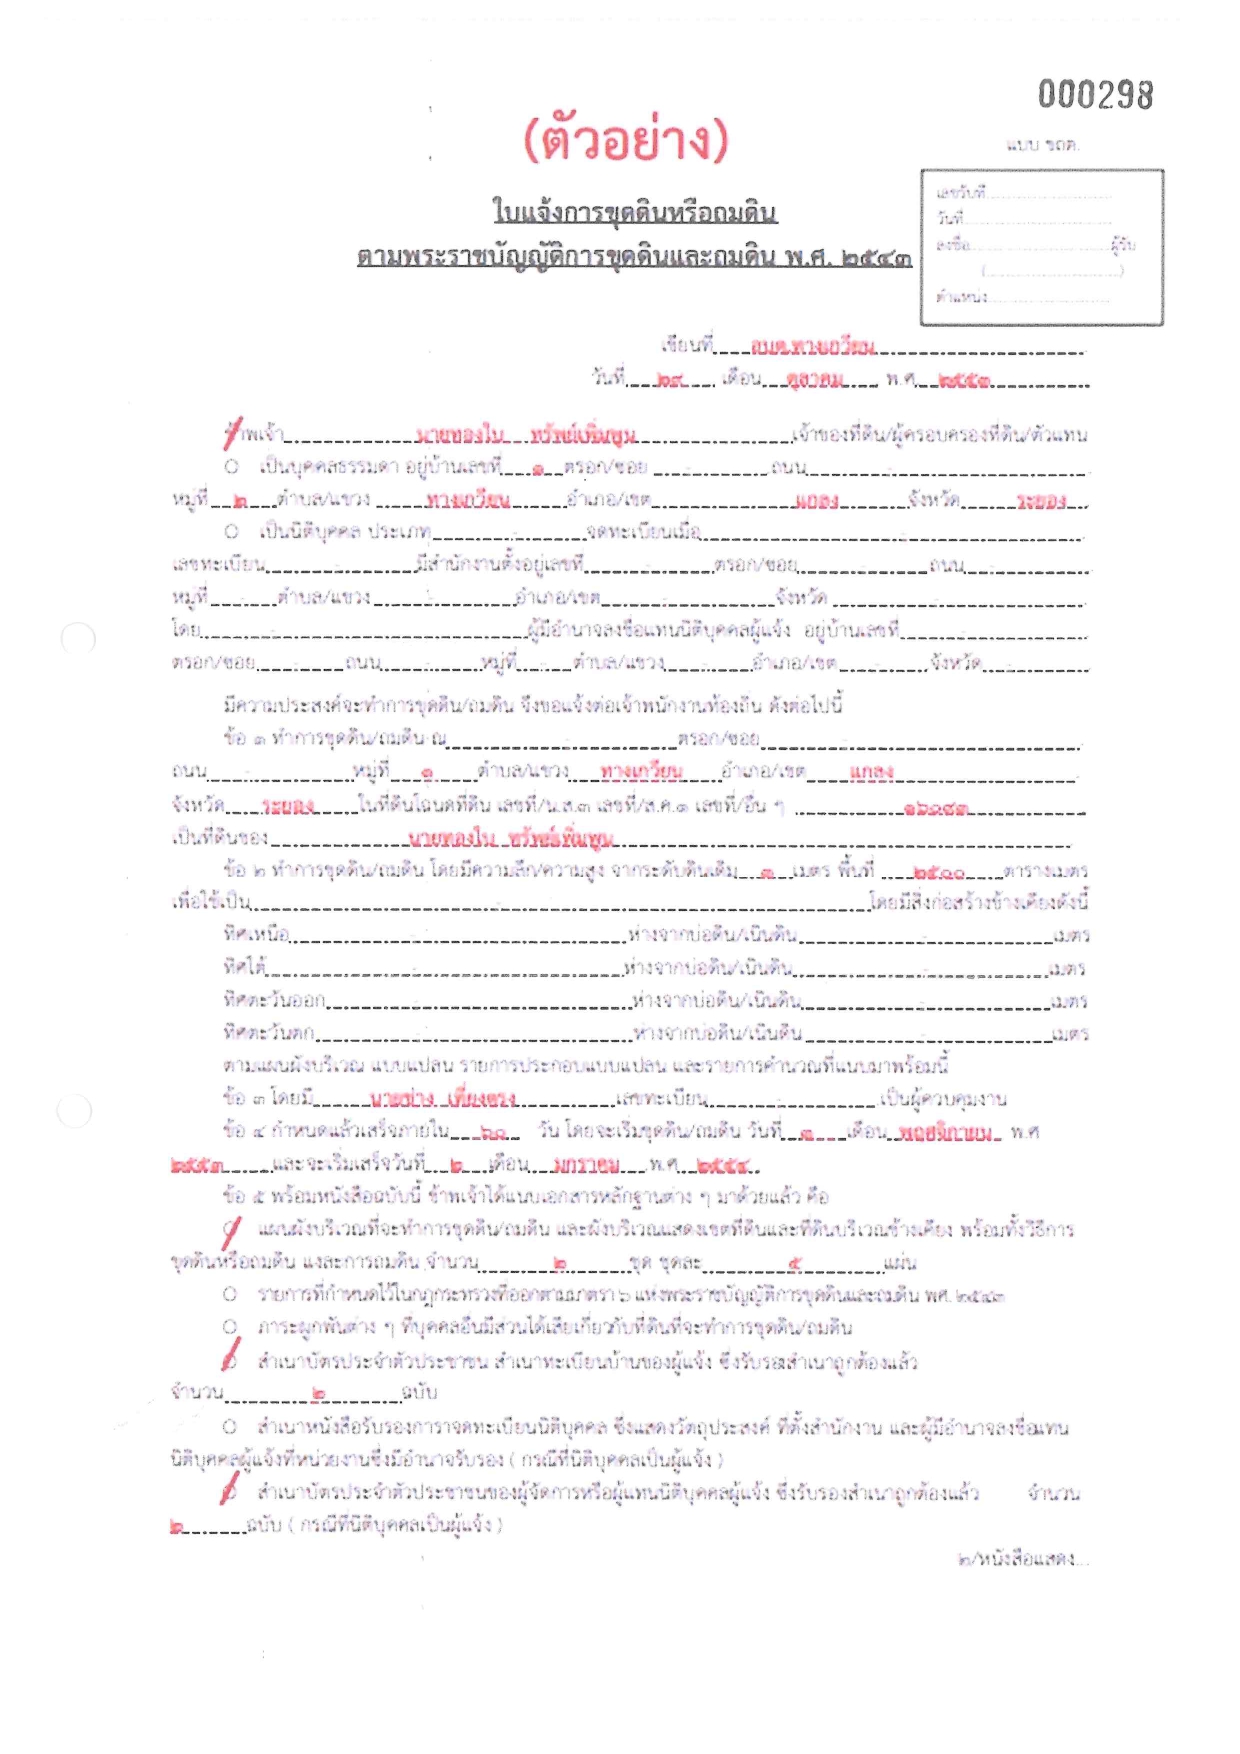 000298
(ตัวอย่าง)
แบบ ขถด.
ใบแจ้งการขุดดินหรือถมดิน
ตามพระราชบัญญัติการขุดดินและถมดิน พ.ศ. ๒๕๔๓
เลขรับที่
วันที่
ลงชื่อ ผู้รับ
( )
ตำแหน่ง
เขียนที่ อบต.ทางเกวียน
วันที่ ๒๙ เดือน ตุลาคม พ.ศ. ๒๕๕๓
ข้าพเจ้า นายทองใบ ทรัพย์เพิ่มพูน เจ้าของที่ดิน/ผู้ครอบครองที่ดิน/ตัวแทน
○ เป็นบุคคลธรรมดา อยู่บ้านเลขที่ ๑ ตรอก/ซอย - ถนน -
หมู่ที่ ๒ ตำบล/แขวง ทางเกวียน อำเภอ/เขต แกลง จังหวัด ระยอง
○ เป็นนิติบุคคล ประเภท - จดทะเบียนเมื่อ -
เลขทะเบียน - มีสำนักงานตั้งอยู่เลขที่ - ตรอก/ซอย - ถนน -
หมู่ที่ - ตำบล/แขวง - อำเภอ/เขต - จังหวัด -
โดย - ผู้มีอำนาจลงชื่อแทนนิติบุคคลผู้แจ้ง อยู่บ้านเลขที่ -
ตรอก/ซอย - ถนน - หมู่ที่ - ตำบล/แขวง - อำเภอ/เขต - จังหวัด -
มีความประสงค์จะทำการขุดดิน/ถมดิน จึงขอแจ้งต่อเจ้าพนักงานท้องถิ่น ดังต่อไปนี้
ข้อ ๑ ทำการขุดดิน/ถมดิน ณ - ตรอก/ซอย -
ถนน - หมู่ที่ ๑ ตำบล/แขวง ทางเกวียน อำเภอ/เขต แกลง
จังหวัด ระยอง ในที่ดินโฉนดที่ดิน เลขที่/น.ส.๓ เลขที่/ส.ค.๑ เลขที่/อื่น ๆ ๑๖๑๙๓
เป็นที่ดินของ นายทองใบ ทรัพย์เพิ่มพูน
ข้อ ๒ ทำการขุดดิน/ถมดิน โดยมีความลึก/ความสูง จากระดับดินเดิม ๑ เมตร พื้นที่ ๒๕๐๐ ตารางเมตร
เพื่อใช้เป็น - โดยมีสิ่งก่อสร้างข้างเคียงดังนี้
ทิศเหนือ - ห่างจากบ่อดิน/เนินดิน - เมตร
ทิศใต้ - ห่างจากบ่อดิน/เนินดิน - เมตร
ทิศตะวันออก - ห่างจากบ่อดิน/เนินดิน - เมตร
ทิศตะวันตก - ห่างจากบ่อดิน/เนินดิน - เมตร
ตามแผนผังบริเวณ แบบแปลน รายการประกอบแบบแปลน และรายการคำนวณที่แนบมาพร้อมนี้
ข้อ ๓ โดยมี นายช่าง เที่ยงตรง เลขทะเบียน - เป็นผู้ควบคุมงาน
ข้อ ๔ กำหนดแล้วเสร็จภายใน ๖๐ วัน โดยจะเริ่มขุดดิน/ถมดิน วันที่ ๑ เดือน พฤศจิกายน พ.ศ
๒๕๕๓ และจะเริ่มเสร็จวันที่ ๒ เดือน มกราคม พ.ศ. ๒๕๕๔
ข้อ ๕ พร้อมหนังสือฉบับนี้ ข้าพเจ้าได้แนบเอกสารหลักฐานต่าง ๆ มาด้วยแล้ว คือ
○ แผนผังบริเวณที่จะทำการขุดดิน/ถมดิน และผังบริเวณแสดงเขตที่ดินและที่ดินบริเวณข้างเคียง พร้อมทั้งวิธีการ
ขุดดินหรือถมดิน แงละการถมดิน จำนวน ๒ ชุด ชุดละ ๕ แผ่น
○ รายการที่กำหนดไว้ในกฎกระทรวงที่ออกตามมาตรา ๖ แห่งพระราชบัญญัติการขุดดินและถมดิน พศ. ๒๕๔๓
○ ภาระผูกพันต่าง ๆ ที่บุคคลอื่นมีส่วนได้เสียเกี่ยวกับที่ดินที่จะทำการขุดดิน/ถมดิน
○ สำเนาบัตรประจำตัวประชาชน สำเนาทะเบียนบ้านของผู้แจ้ง ซึ่งรับรองสำเนาถูกต้องแล้ว
จำนวน ๒ ฉบับ
○ สำเนาหนังสือรับรองการาจดทะเบียนนิติบุคคล ซึ่งแสดงวัตถุประสงค์ ที่ตั้งสำนักงาน และผู้มีอำนาจลงชื่อแทน
นิติบุคคลผู้แจ้งที่หน่วยงานซึ่งมีอำนาจรับรอง ( กรณีที่นิติบุคคลเป็นผู้แจ้ง )
○ สำเนาบัตรประจำตัวประชาชนของผู้จัดการหรือผู้แทนนิติบุคคลผู้แจ้ง ซึ่งรับรองสำเนาถูกต้องแล้ว จำนวน
๒ ฉบับ ( กรณีที่นิติบุคคลเป็นผู้แจ้ง )
๒/หนังสือแสดง...